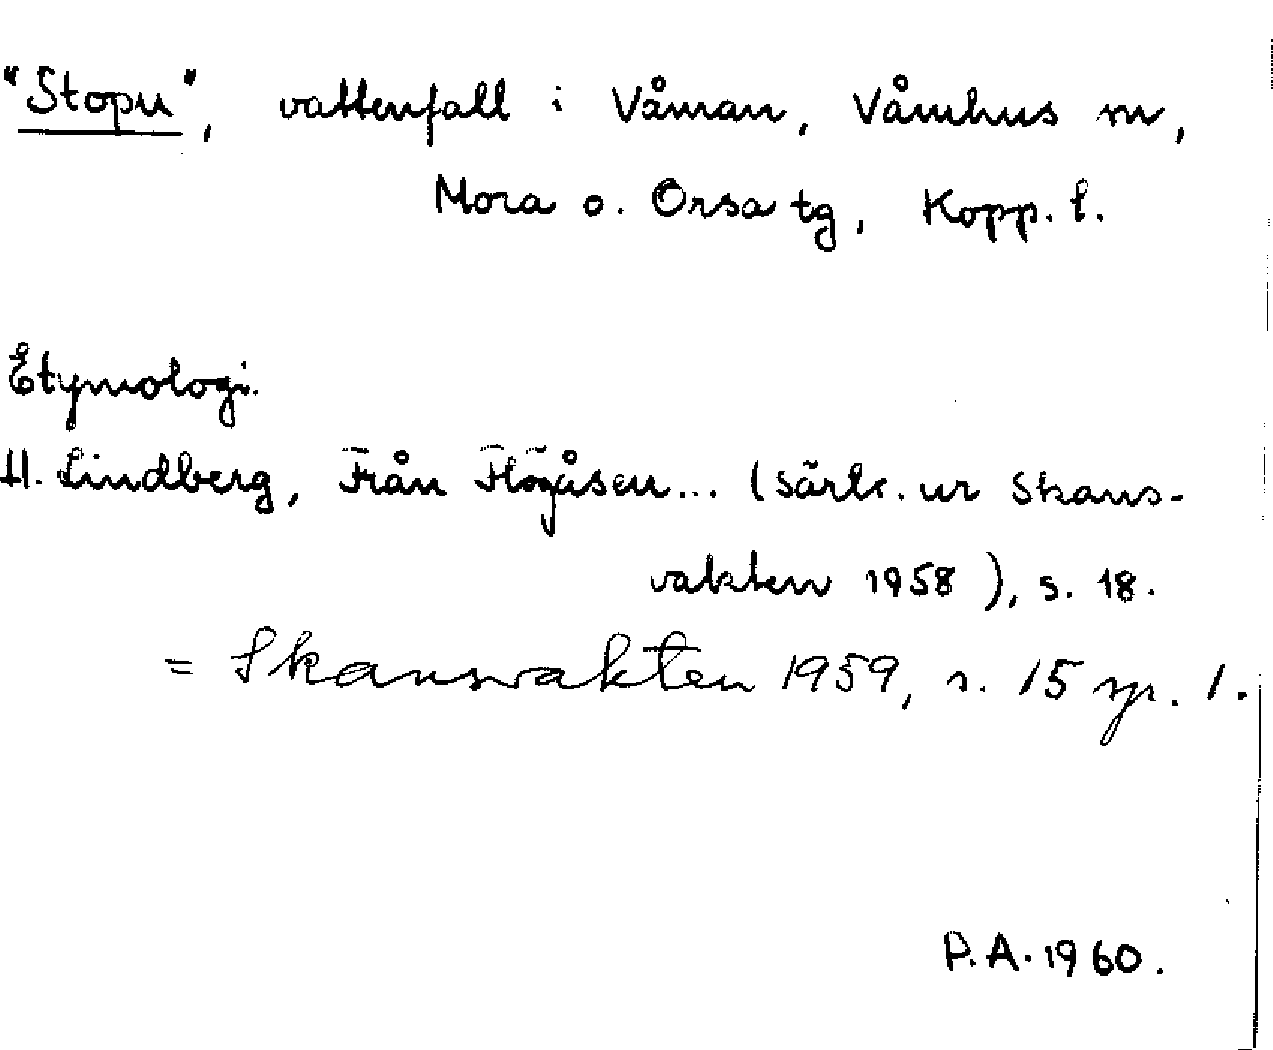 "Stopu", vattenfall i Våman, Våmhus sn,
Mora o. Orsa tg, Kopp. l.
Etymologi.
H. Lindberg, Från Flögåsen... (särtr. ur Skans-
vakten 1958), s. 18.
= Skansvakten 1959, s. 15 sp. 1.
P.A. 1960.